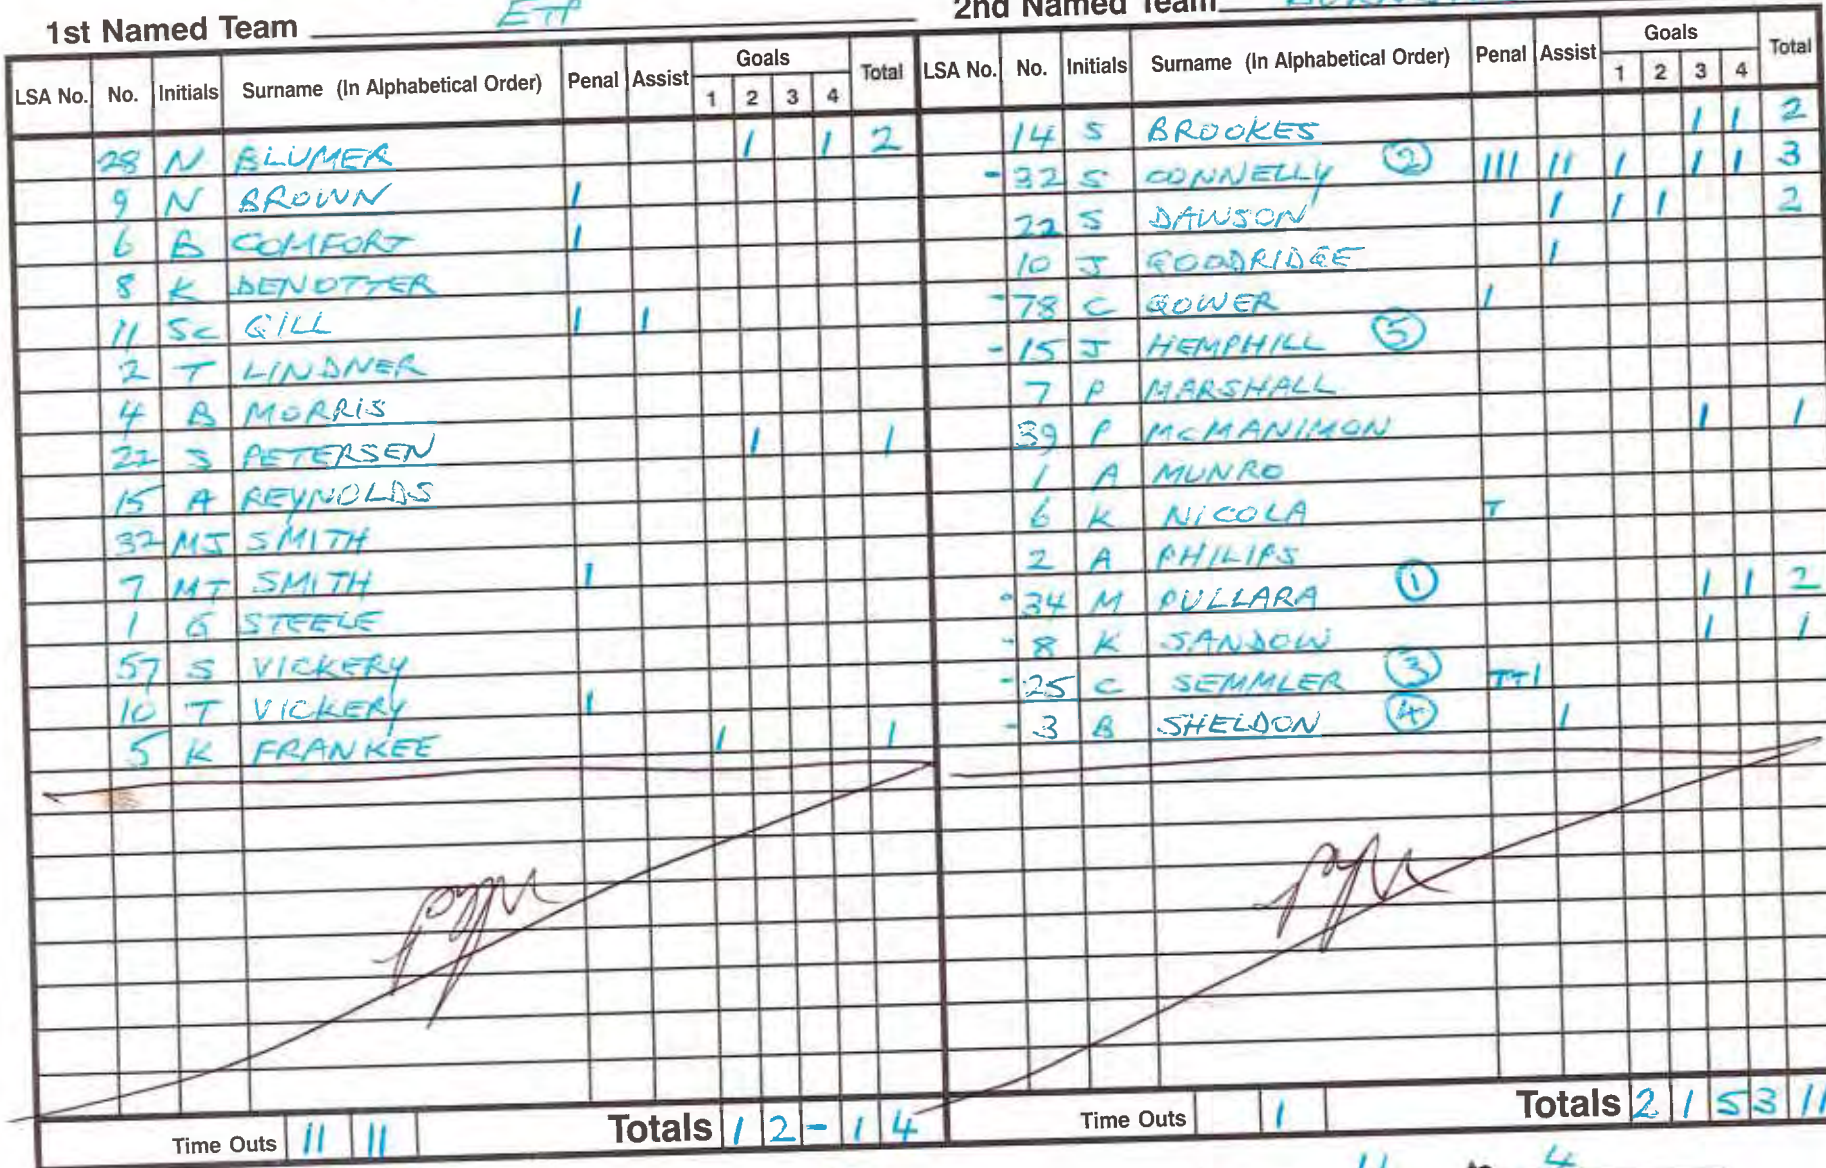 1st Named Team ETP
LSA No. No. Initials Surname (In Alphabetical Order) Penal Assist Goals 1 2 3 4 Total
28 N BLUMER 1 1 2
9 N BROWN 1
6 B COMFORT 1
8 K DENOTTER
11 Sc GILL 1 1
2 T LINDNER
4 B MORRIS
22 S PETERSEN 1 1
15 A REYNOLDS
32 MJ SMITH
7 MT SMITH 1
1 G STEELE
57 S VICKERY
10 T VICKERY 1
5 K FRANKEE 1 1
Time Outs 11 11 Totals 1 2 - 1 4
2nd Named Team
LSA No. No. Initials Surname (In Alphabetical Order) Penal Assist Goals 1 2 3 4 Total
14 S BROOKES 1 1 2
- 32 S CONNELLY 2 111 11 1 1 1 3
22 S DAWSON 1 1 1 2
10 J GOODRIDGE 1
- 78 C GOWER 1
- 15 J HEMPHILL 5
7 P MARSHALL
39 P McMANIMON 1 1
1 A MUNRO
6 K NICOLA T
2 A PHILIPS
- 34 M PULLARA 1 1 1 2
- 8 K SANDOW 1 1
- 25 C SEMMLER 3 TT1
- 3 B SHELDON 4 1
Time Outs 1 Totals 2 1 5 3 11
11 to 4